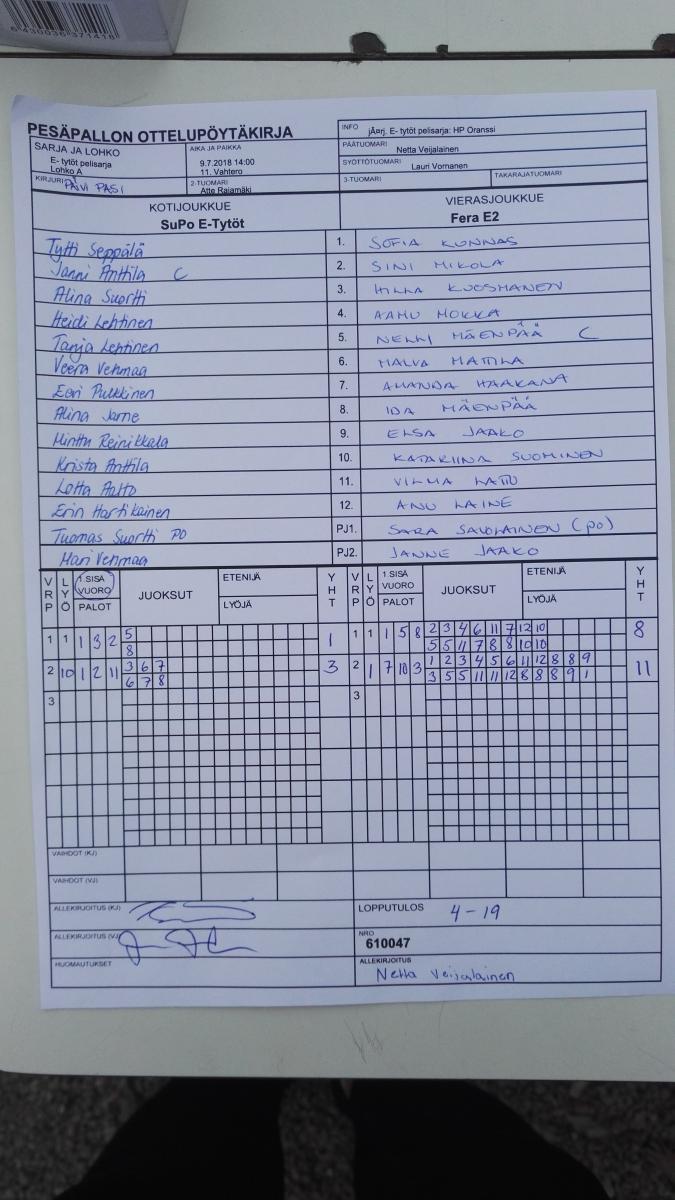 6430036 371416
PESÄPALLON OTTELUPÖYTÄKIRJA
INFO jÄ¤rj. E- tytöt pelisarja: HP Oranssi
SARJA JA LOHKO
E- tytöt pelisarja
Lohko A
AIKA JA PAIKKA
9.7.2018 14:00
11. Vahtero
PÄÄTUOMARI Netta Veijalainen
SYÖTTÖTUOMARI Lauri Vornanen
KIRJURI PÄIVI PASI
2-TUOMARI
Atte Rajamäki
3-TUOMARI
TAKARAJATUOMARI
KOTIJOUKKUE
SuPo E-Tytöt
VIERASJOUKKUE
Fera E2
Tytti Seppälä 1. SOFIA KUNNAS
Janni Anttila C 2. SINI MIKOLA
Alina Suortti 3. HILLA KUOSMANEN
Heidi Lehtinen 4. AAMU MOKKA
Tanja Lehtinen 5. NELLI MÄENPÄÄ C
Veera Vehmaa 6. MALVA MATTILA
Eevi Pulkkinen 7. AMANDA HAAKANA
Alina Jarne 8. IDA MÄENPÄÄ
Minttu Reinikkala 9. ELSA JAAKO
Krista Anttila 10. KATARIINA SUOMINEN
Lotta Aalto 11. VILMA LATTU
Erin Hartikainen 12. ANU LAINE
Tuomas Suortti PO PJ1. SARA SAVOLAINEN (PO)
Mari Vehmaa PJ2. JANNE JAAKO
VRP LYÖ 1.SISÄ VUORO PALOT JUOKSUT ETENIJÄ LYÖJÄ YHT VRP LYÖ 1.SISÄ VUORO PALOT JUOKSUT ETENIJÄ LYÖJÄ YHT
1 1 1 3 2 5 1 1 1 1 5 8 2 3 4 6 11 7 12 10 8
8 5 5 11 7 8 8 10 10
2 10 1 2 11 3 6 7 3 2 1 7 10 3 1 2 3 4 5 6 11 12 8 8 9 11
6 7 8 3 5 5 11 11 12 8 8 8 9 1
3 3
VAIHDOT (KJ)
VAIHDOT (VJ)
ALLEKIRJOITUS (KJ)
LOPPUTULOS 4-19
ALLEKIRJOITUS (VJ)
NRO
610047
HUOMAUTUKSET
ALLEKIRJOITUS
Netta Veijalainen